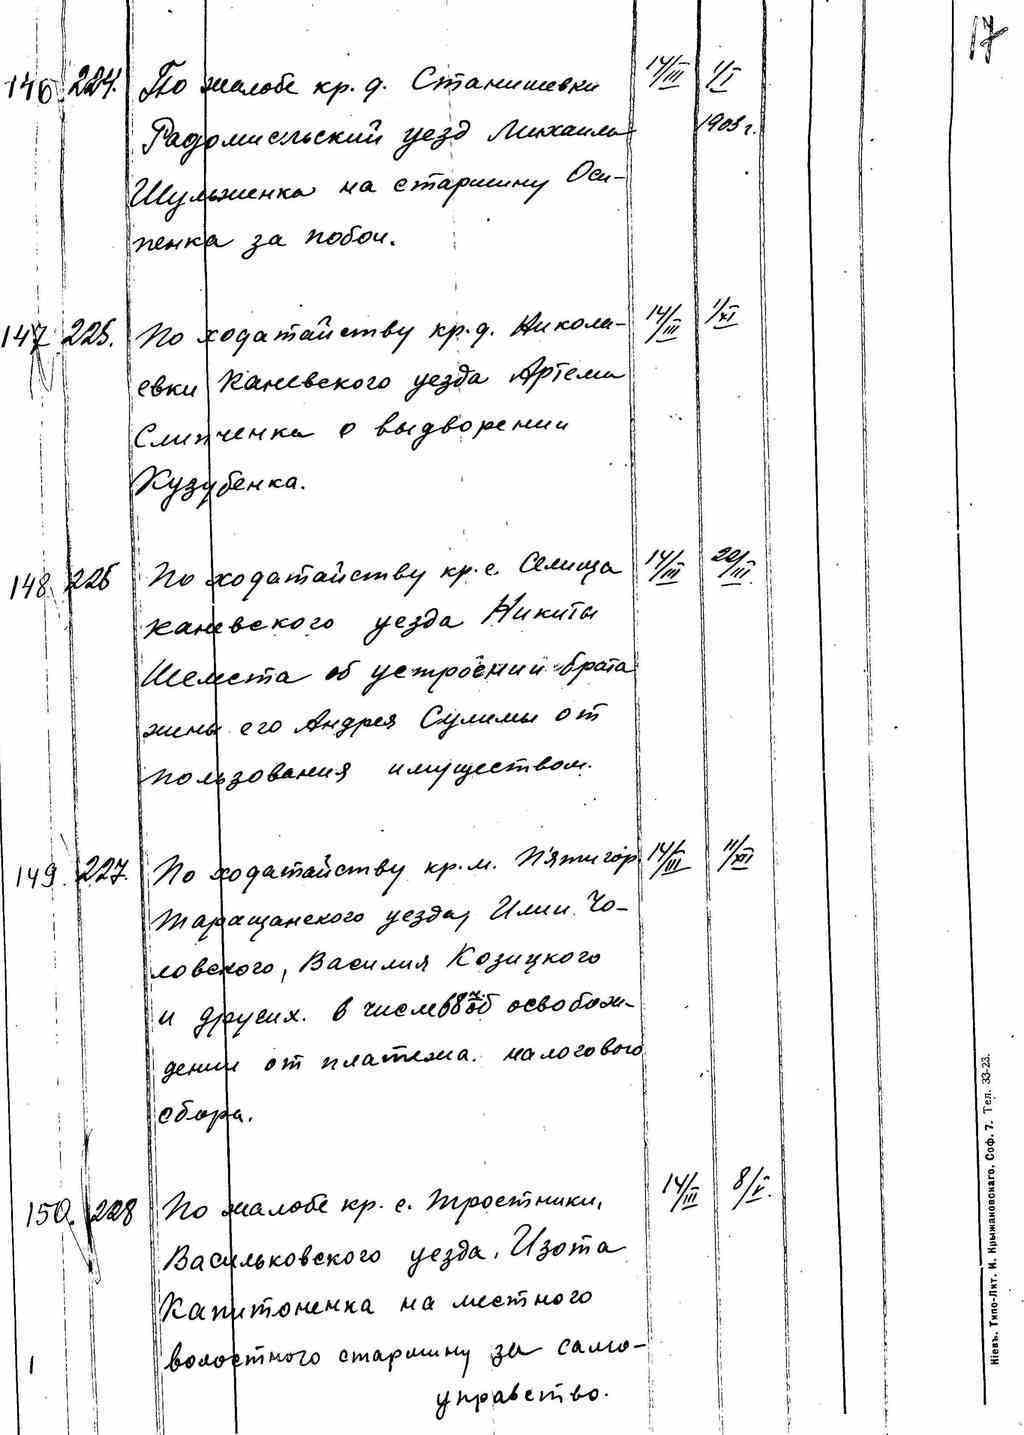 17
146. 224. По жалобе кр. д. Станишевки 14/III 1/I
Радомисльский уезд Михаила 1903 г.
Шульженка на старшину Оси-
пенка за побои.
147 225. По ходатайству кр. д. Никола- 14/III 1/XI
евки Каневского уезда Артема
Слипченка о выдворении
Кузубенка.
148. 226 По ходатайству кр. с. Селища 14/III 22/III.
Каневского уезда Никиты
Шемета об устроении брата
жены его Андрея Сулимы от
пользования имуществом.
149. 227. По ходатайству кр. м. П'ятигор 14/III 11/XII
Таращанского уезда, Илии Чо-
ловского, Василия Козицкого
и других. в числе 68 об освобож-
дении от платежа. налогового
сбора.
150. 228 По жалобе кр. с. Тростники, 14/III 8/V.
Васильковского уезда. Изота
Капитоненка на местного
волостного старшину за само-
управство.
Кіевъ. Типо-Лит. И. Крыжановскаго. Соф. 7. Тел. 33-23.